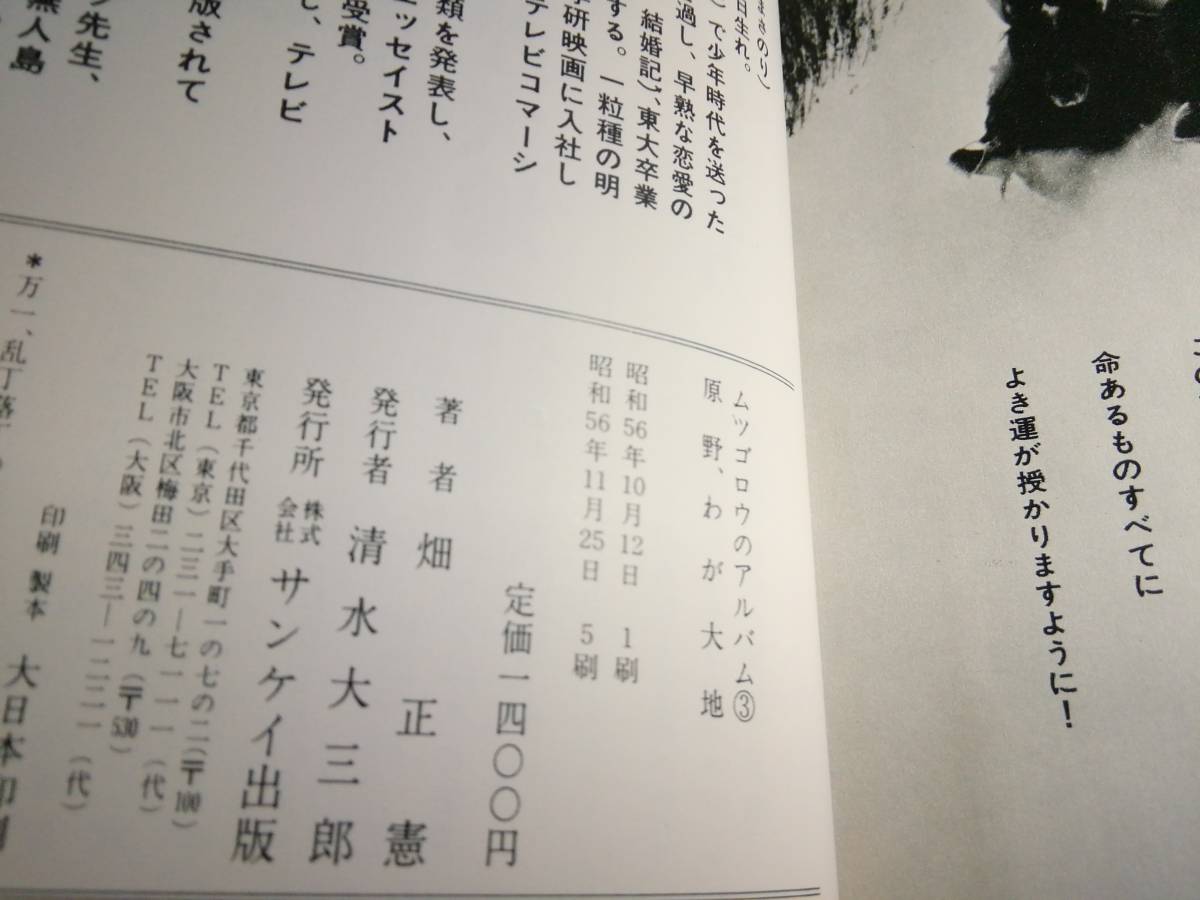 命あるものすべてに
よき運が授かりますように!
まきのり)
日生れ。
)で少年時代を送った
過し、早熟な恋愛の
結婚記)、東大卒業
する。一粒種の明
研映画に入社し
テレビコマーシ
類を発表し、
エッセイスト
受賞。
し、テレビ
版されて
先生、
無人島
ムツゴロウのアルバム③
原野、わが大地
昭和56年10月12日 1刷
昭和56年11月25日 5刷
定価一四〇〇円
著者 畑 正 憲
発行者 清水大三郎
発行所 株式会社 サンケイ出版
東京都千代田区大手町一の七の二(〒100)
TEL(東京)二三一―七一一一(代)
大阪市北区梅田二の四の九(〒530)
TEL(大阪)三四三―一二二一(代)
印刷 製本 大日本印刷
*万一、乱丁落丁